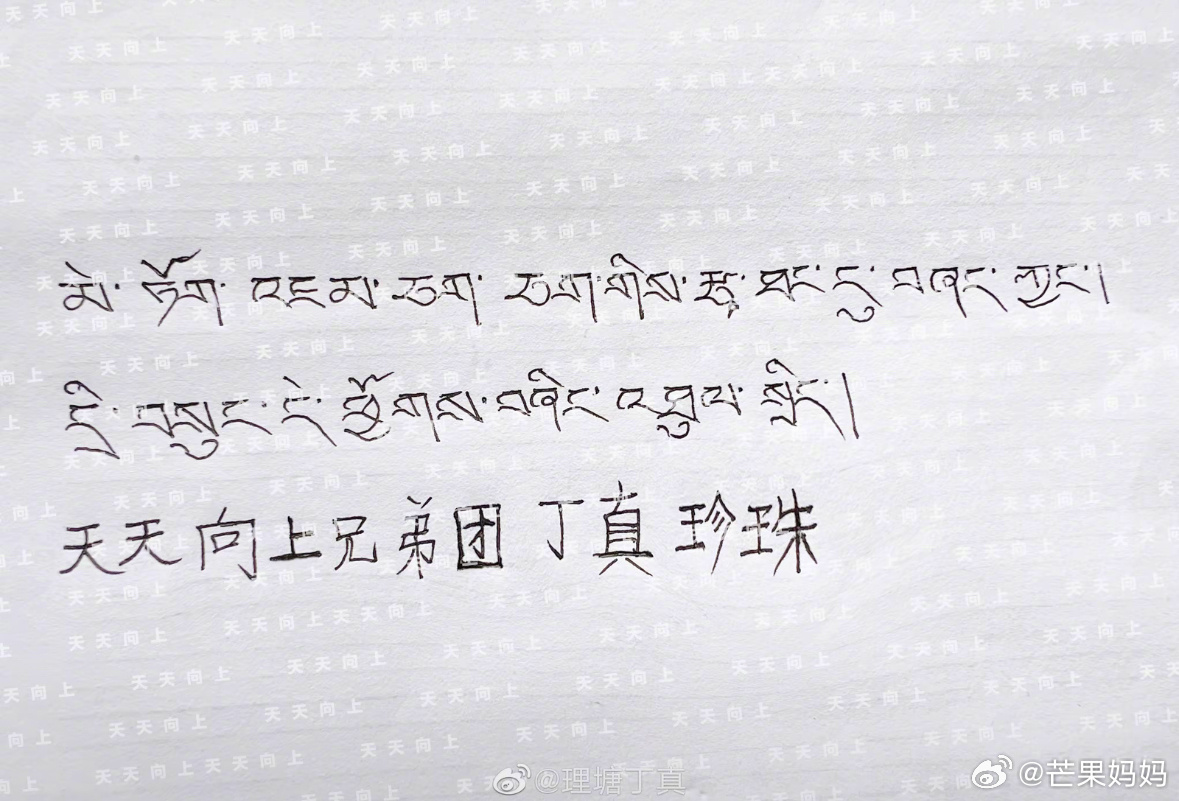 མེ་ཏོག་འཇམ་ཅག་ཅག་གིས་རྩྭ་ཐང་དུ་བཞད་ཀྱང་།
དྲི་བསུང་ངེ་ཕྱོགས་བཞིར་འཐུལ་
天天向上兄弟团 丁真珍珠
@理塘丁真
@芒果妈妈
天天向上